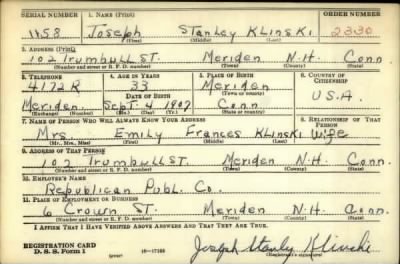 SERIAL NUMBER 1. NAME (Print) ORDER NUMBER
1158 Joseph Stanley Klinski 2330
(First) (Middle) (Last)
2. ADDRESS (Print)
102 Trumbull St. Meriden N.H. Conn.
(Number and street or R. F. D. number) (Town) (County) (State)
3. TELEPHONE 4. AGE IN YEARS 5. PLACE OF BIRTH 6. COUNTRY OF CITIZENSHIP
4172R 33 Meriden
(Town or county)
DATE OF BIRTH U.S.A.
Meriden Sept. 4 1907 Conn
(Exchange) (Number) (Mo.) (Day) (Yr.) (State or country)
7. NAME OF PERSON WHO WILL ALWAYS KNOW YOUR ADDRESS 8. RELATIONSHIP OF THAT PERSON
Mrs. Emily Frances Klinski Wife
(Mr., Mrs., Miss) (First) (Middle) (Last)
9. ADDRESS OF THAT PERSON
102 Trumbull St. Meriden N.H. Conn.
(Number and street or R. F. D. number) (Town) (County) (State)
10. EMPLOYER'S NAME
Republican Publ. Co.
11. PLACE OF EMPLOYMENT OR BUSINESS
6 Crown St. Meriden N.H Conn.
(Number and street or R. F. D. number) (Town) (County) (State)
I AFFIRM THAT I HAVE VERIFIED ABOVE ANSWERS AND THAT THEY ARE TRUE.
REGISTRATION CARD
D. S. S. Form 1 (over) 16—17105 Joseph Stanley Klinski
(Registrant's signature)